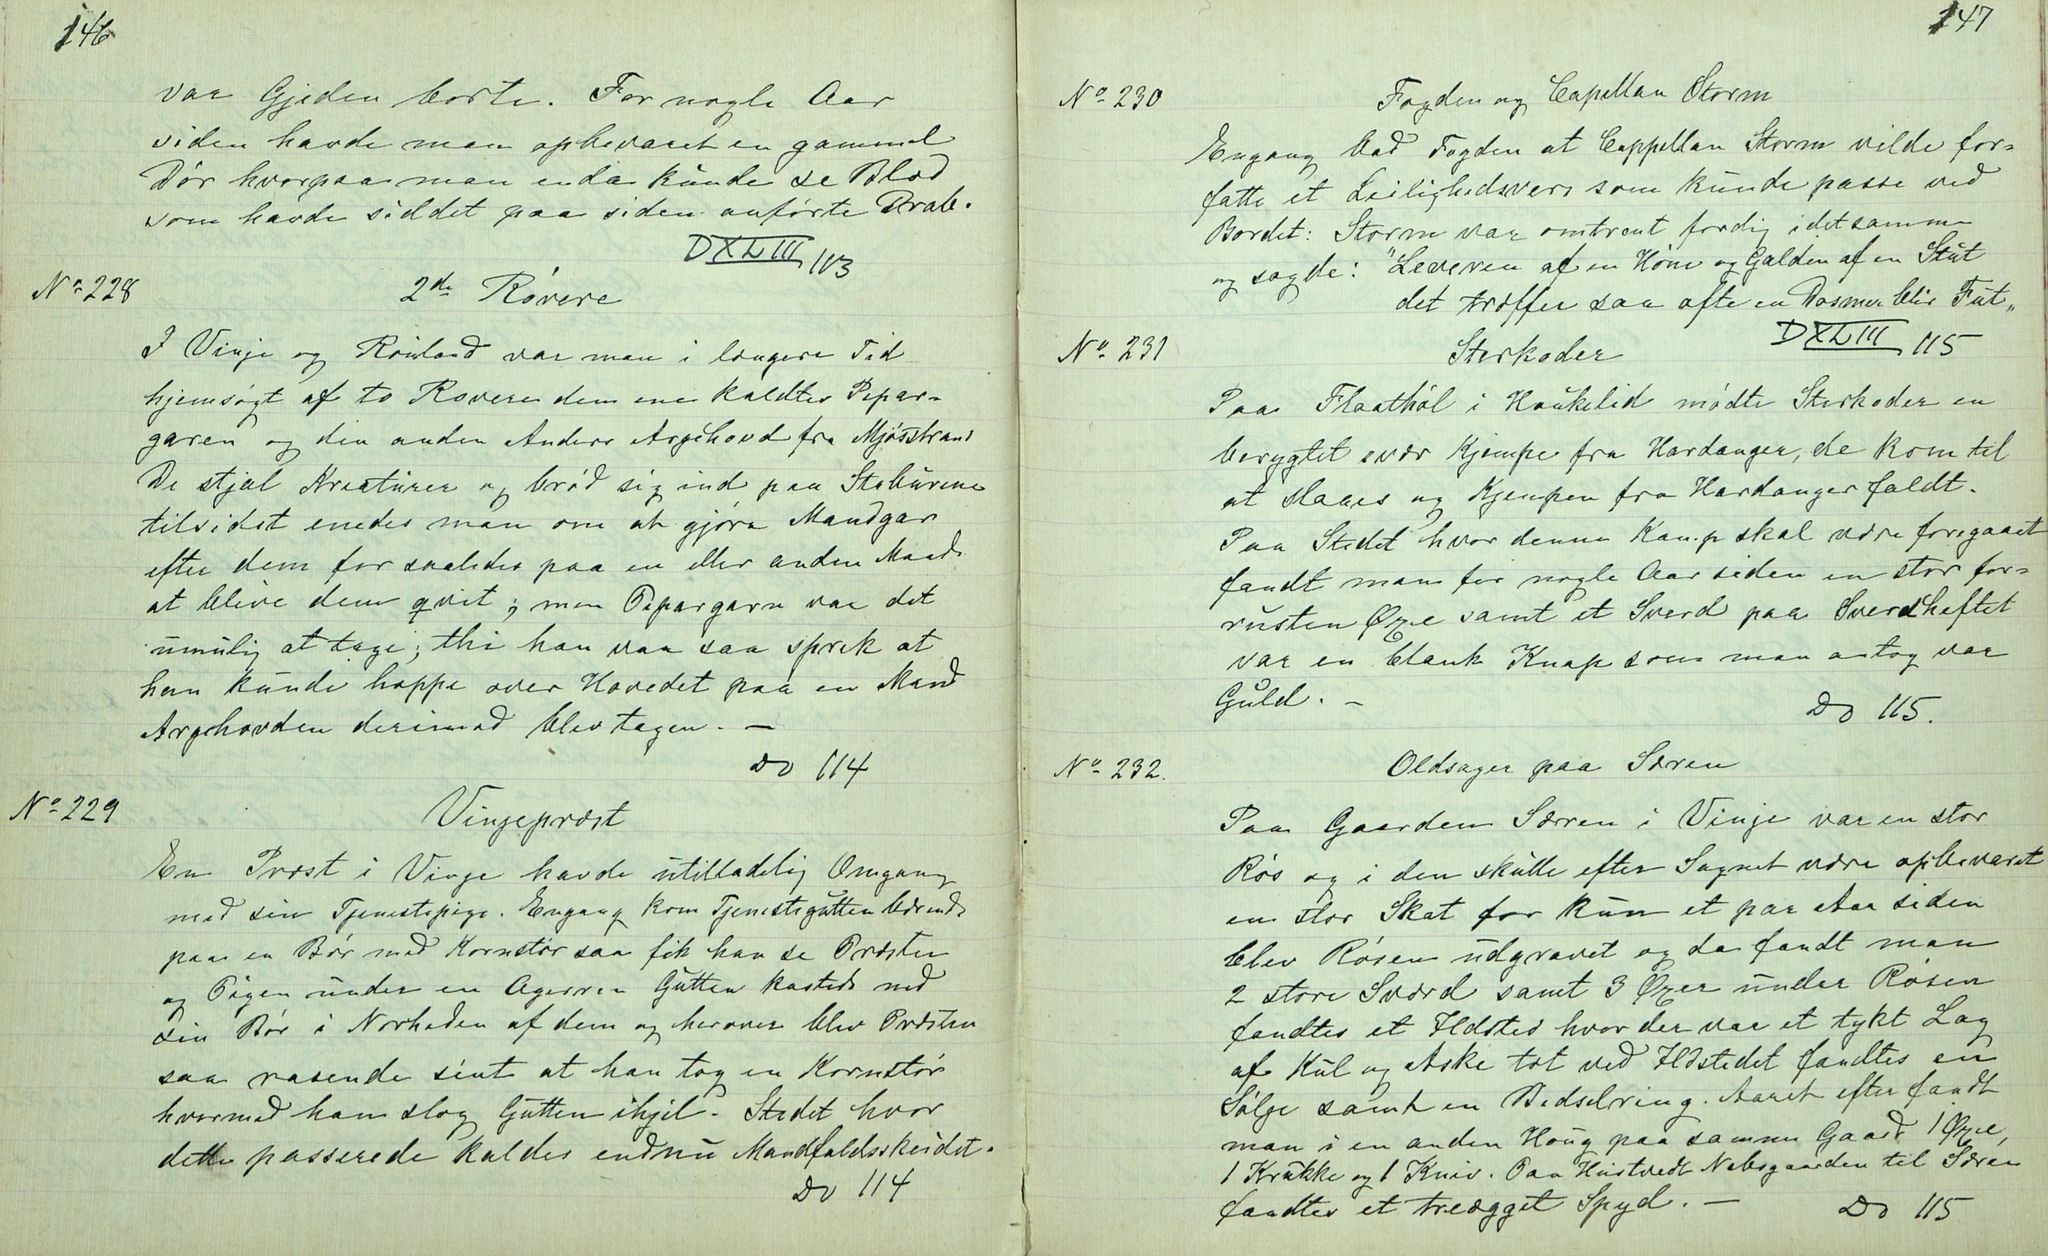 146
var Gjeden borte. For nogle Aar
siden havde man opbevaret en gammel
Dør hvorpaa man enda kunde se Blod
som havde siddet paa siden anførte Drab.
DXLIII 113
No 228
2de Røvere
I Vinje og Rauland var man i længere Tid
hjemsøgt af to Røvere dem ene kaldtes Pepar-
garen og den anden Anders Argehovd fra Mjøsstrand
De stjal Kreaturer og brød sig ind paa Staburene
tilsidst enedes man om at gjøra Mandgar
efter dem for saaledes paa en eller anden Maade
at blive dem qvit; men Pepargarn var det
umulig at tage; thi han var saa sprek at
han kunde hoppe over Hovedet paa en Mand
Argehovden derimod blev tagen. —
Do 114
No 229
Vinjepræst
En Præst i Vinje havde utilladelig Omgang
med sin Tjenestepige. Engang kom Tjenestegutten bærende
paa en Bør med Kornstør saa fik han se Præsten
og Pigen under en Agerren Gutten kastede ned
sin Bør i Nærheden af dem og herover blev Præsten
saa rasende sint at han tog en Kornstør
hvormed han slog Gutten ihjel. Stedet hvor
dette passerede kaldes endnu Mandfaldsskeidet.
Do 114
147
No 230
Fogden og Capellan Storm
Engang bad Fogden at Cappellan Storm vilde for-
fatte et Leilighedsvers som kunde passe ved
Bordet: Storm var omtrent færdig i det samme
og sagde: "Leveren af en Høne og Galden af en Stut
det træffer saa ofte en Dosmer blir Fut"
DXLIII 115
No 231
Sterkoder
Paa Flaathøl i Haukelid mødte Sterkoder en
berygtet svær Kjempe fra Hardanger, de kom til
at slaaes og Kjempen fra Hardanger faldt.
Paa Stedet hvor denne Kamp skal være foregaaet
fandt man for nogle Aar siden en stor for-
rusten Øxe samt et Sverd paa Sverdheftet
var en blank Knap som man antog var
Guld. —
Do 115.
No 232.
Oldsager paa Særen
Paa Gaarden Særren i Vinje var en stor
Røs og i den skulle efter Sagnet være opbevaret
en stor Skat for kun et par Aar siden
blev Røsen udgravet og da fandt man
2 store Sværd samt 3 Øxer under Røsen
fandtes et Ildsted hvor der var et tykt Lag
af Kul og Aske tæt ved Ildstedet fandtes en
Sølge samt en Bidselring. Aaret efter fandt
man i en anden Houg paa samme Gaard 1 Øxe,
1 Krukke og 1 Kniv. Paa Huistvedt Nabogaarden til Særen
fandtes et treægget Spyd. —
Do 115